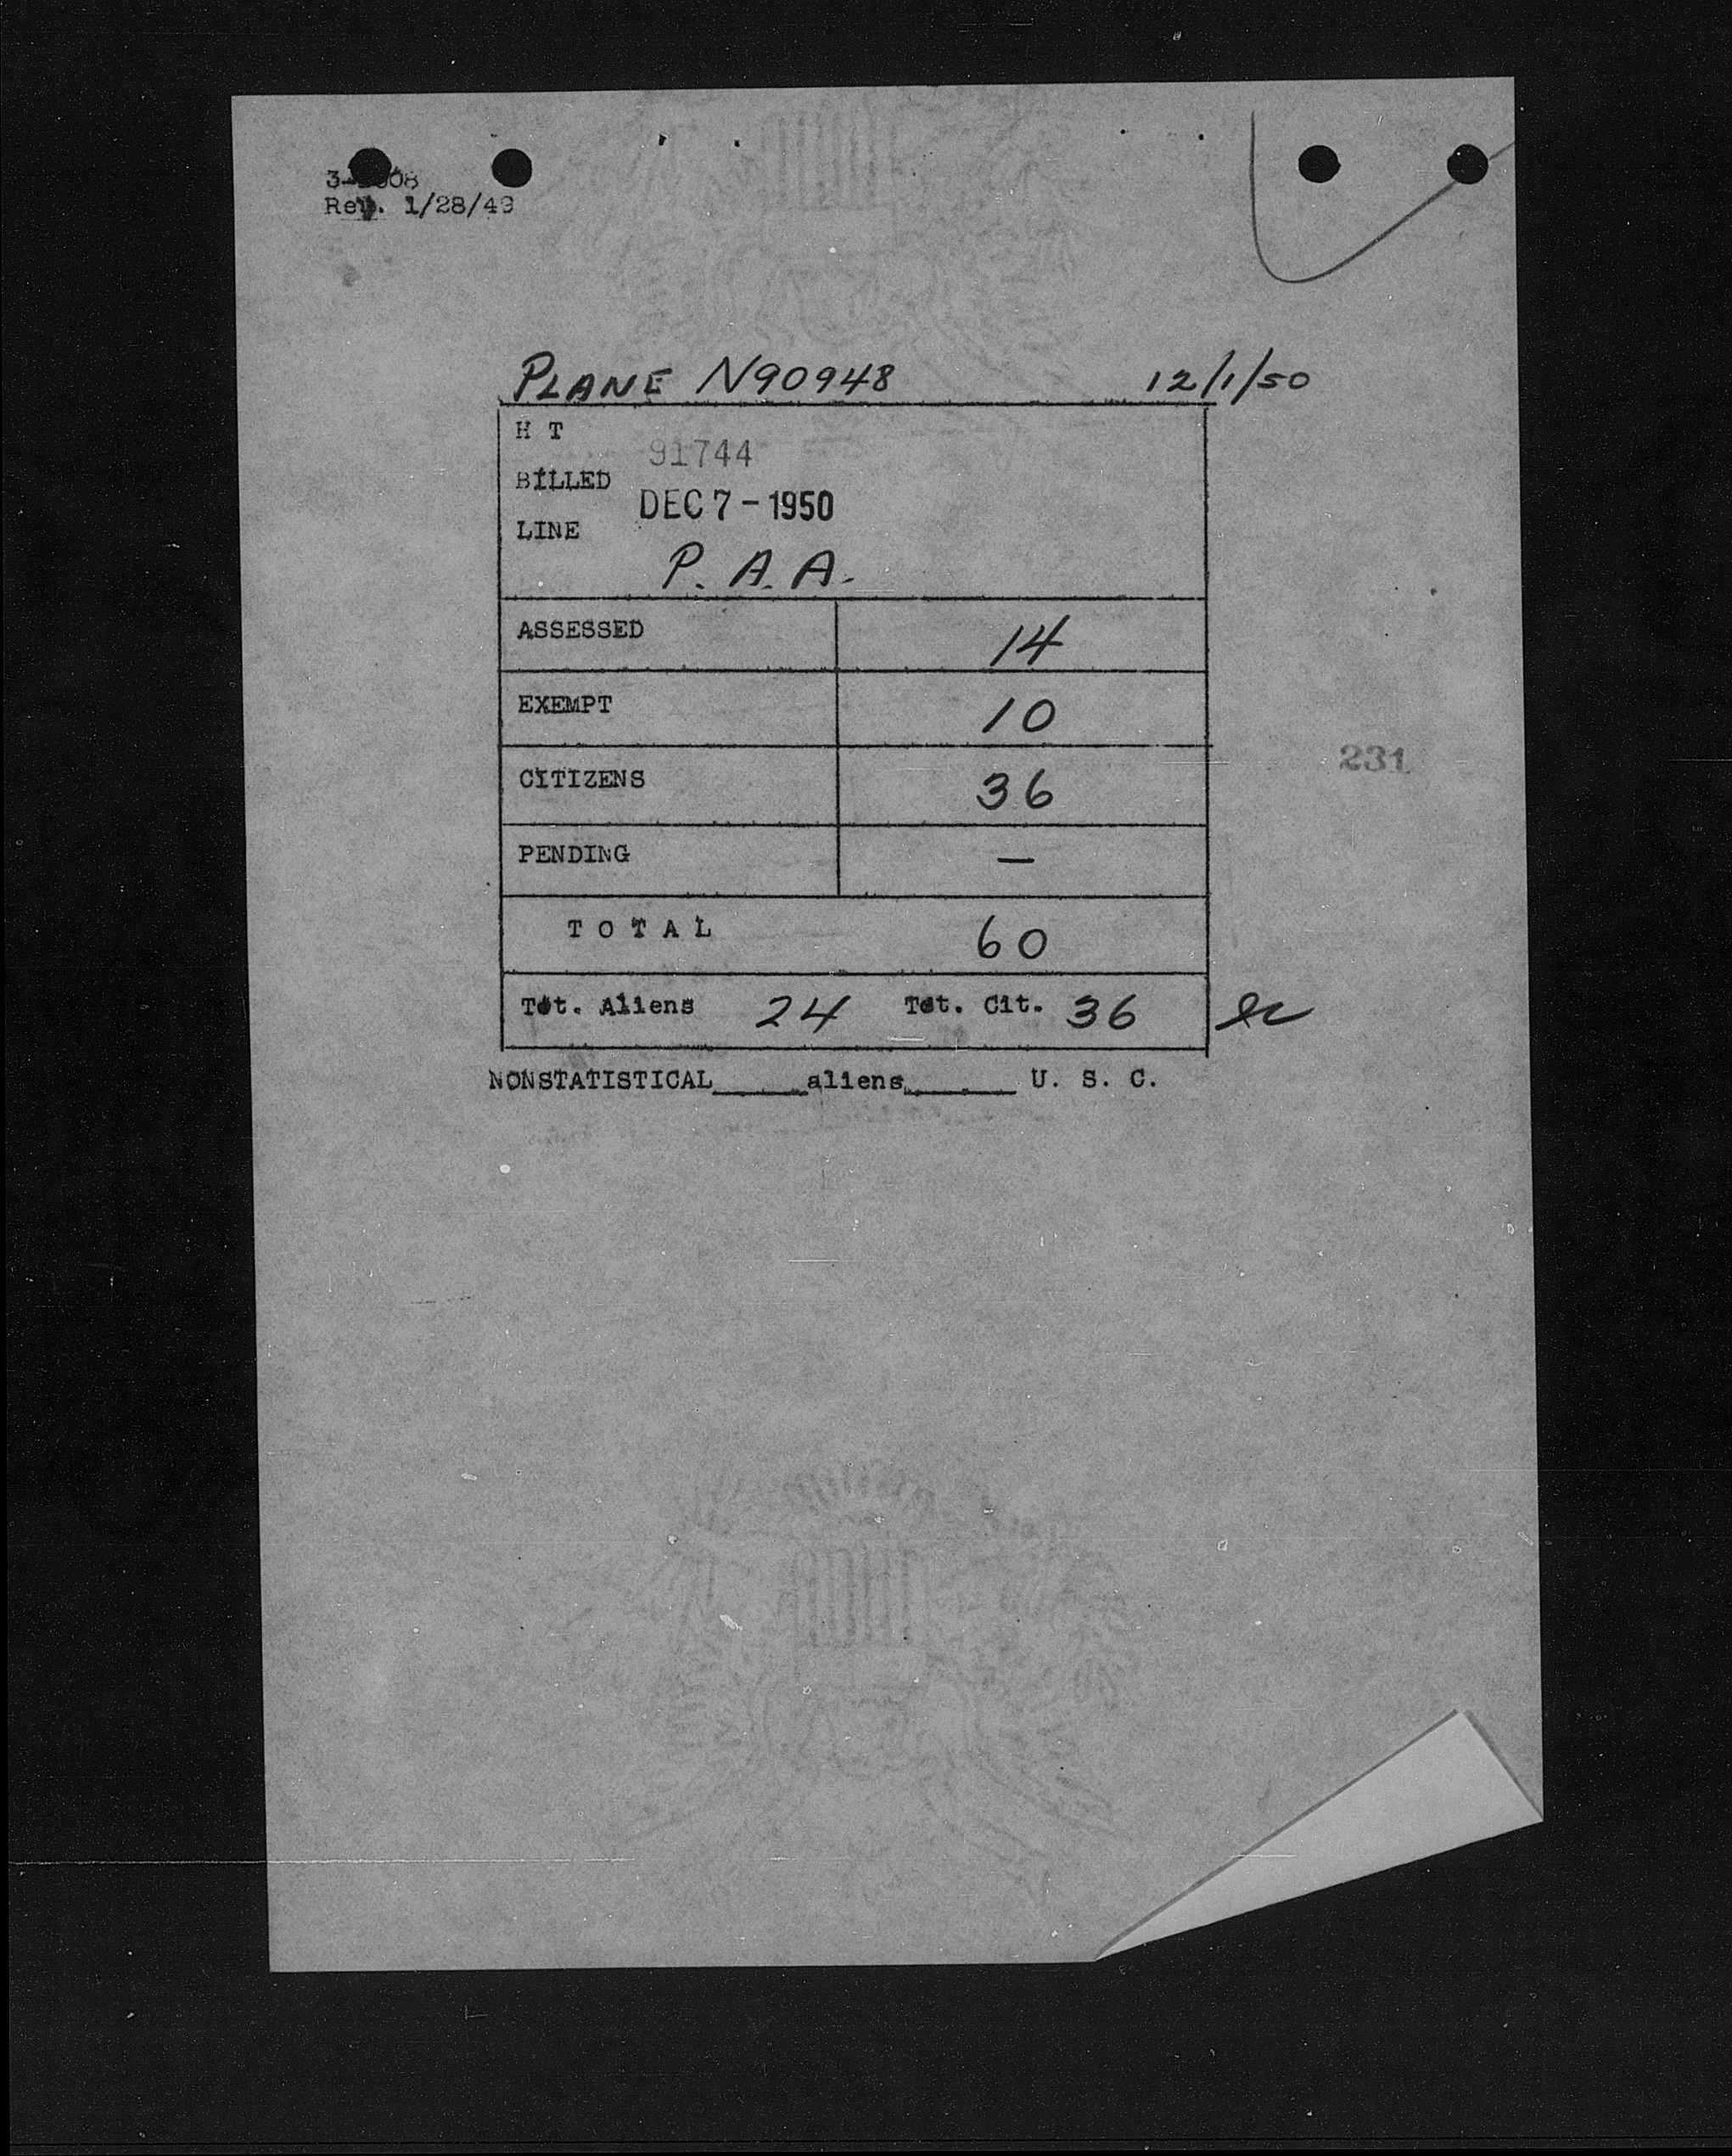 Rev. 1/28/49
PLANE N90948 12/1/50
H T 91744
BILLED DEC 7 - 1950
LINE P. A. A.
ASSESSED 14
EXEMPT 10
CITIZENS 36
PENDING —
TOTAL 60
Tot. Aliens 24 Tot. Cit. 36
NONSTATISTICAL______aliens______ U. S. C.
231